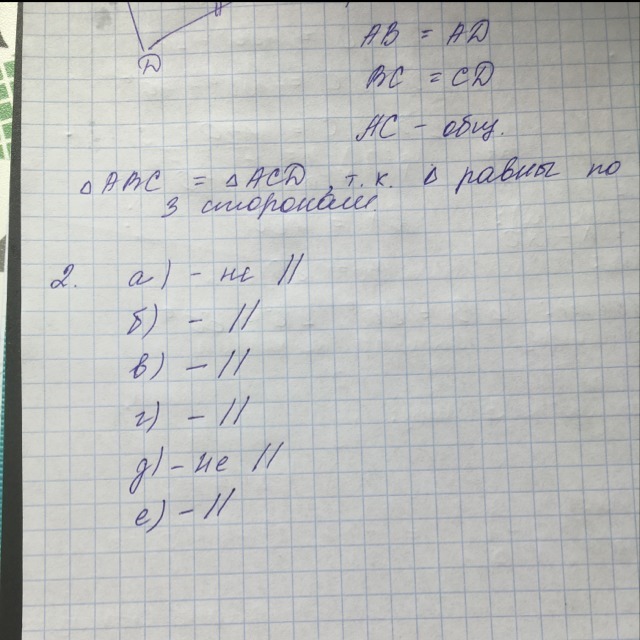 D
AB = AD
BC = CD
AC - общ.
△ABC = △ACD, т.к. △ равны по
3 сторонам.
2. а) - не //
б) - //
в) - //
г) - //
д) - не //
е) - //